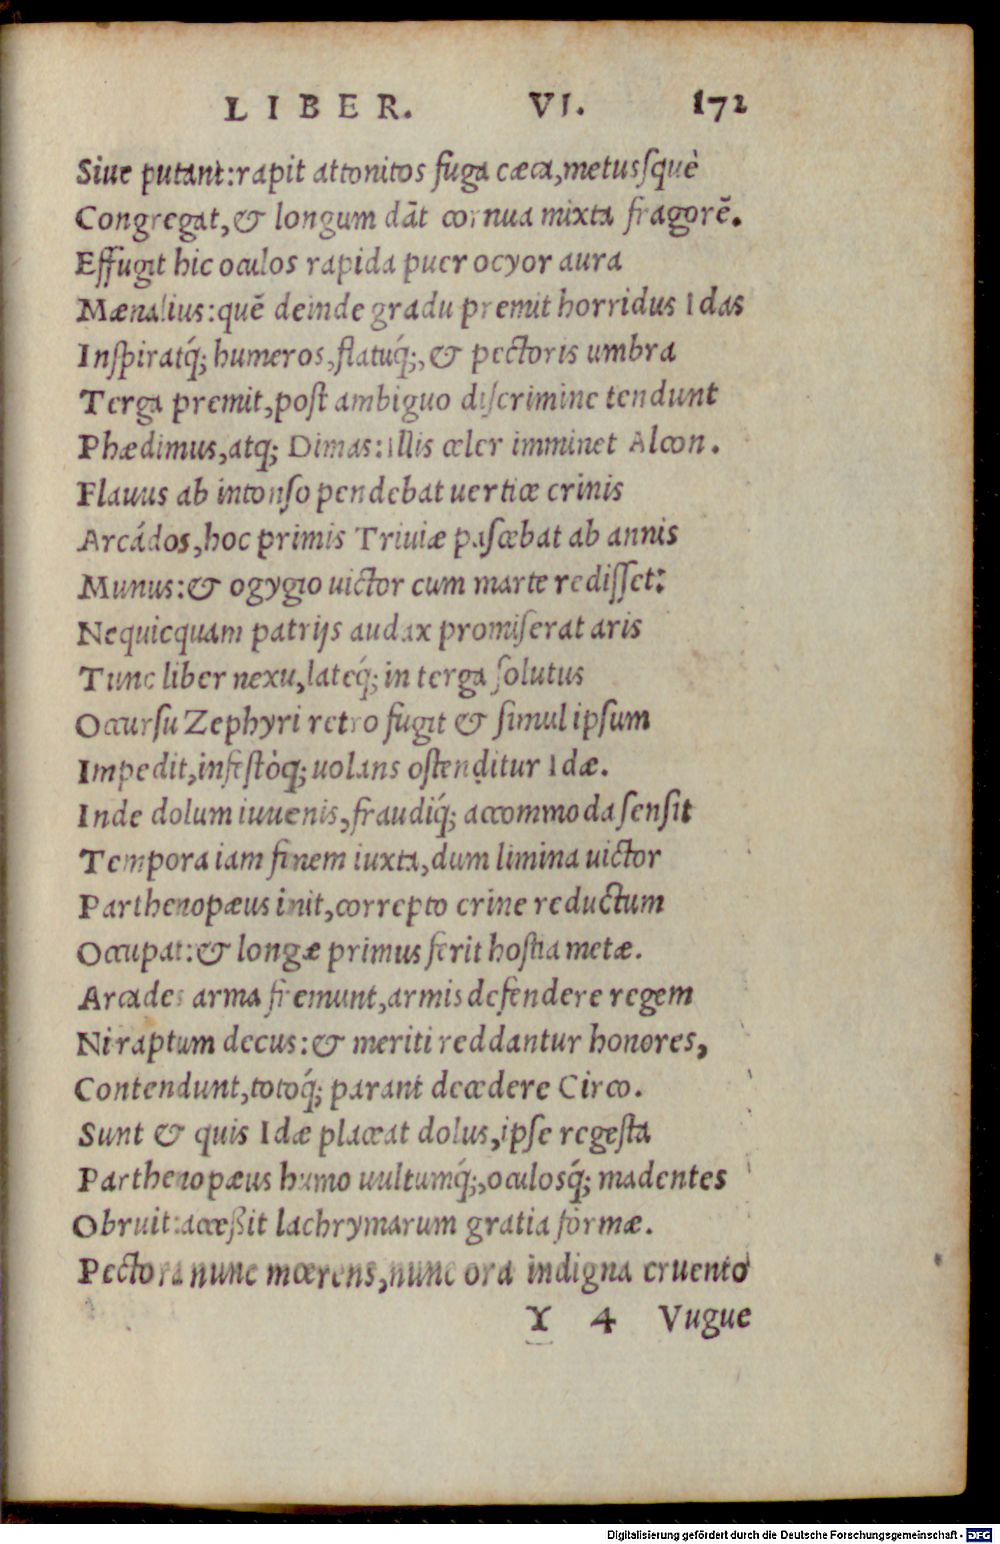 LIBER. VI. 172
Siue putant:rapit attonitos fuga cæca,metusſquè
Congregat,& longum dāt cornua mixta fragorē.
Effugit hic oculos rapida puer ocyor aura
Mænalius:quē deinde gradu premit horridus Idas
Inſpiratq́; humeros,flatuq́;,& pectoris umbra
Terga premit,poſt ambiguo diſcrimine tendunt
Phædimus,atq; Dimas:illis celer imminet Alcon.
Flauus ab intonſo pendebat uertice crinis
Arcádos,hoc primis Triuiæ paſcebat ab annis
Munus:& ogygio uictor cum marte rediſſet:
Nequicquam patrijs audax promiſerat aris
Tunc liber nexu,lateq́; in terga ſolutus
Occurſu Zephyri retro fugit & ſimul ipſum
Impedit,infeſtòq; uolans oſtenditur Idæ.
Inde dolum iuuenis,fraudiq́; accommoda ſenſit
Tempora iam finem iuxta,dum limina uictor
Parthenopæus init,correpto crine reductum
Occupat:& longæ primus ferit hoſtia metæ.
Arcades arma fremunt,armis defendere regem
Ni raptum decus:& meriti reddantur honores,
Contendunt,totoq́; parant decedere Circo.
Sunt & quis Idæ placeat dolus,ipſe regeſta
Parthenopæus humo uultumq́;,oculosq́; madentes
Obruit:acceßit lachrymarum gratia formæ.
Pectora nunc mœrens,nunc ora indigna cruento
Y 4 Vugue
Digitalisierung gefördert durch die Deutsche Forschungsgemeinschaft - DFG